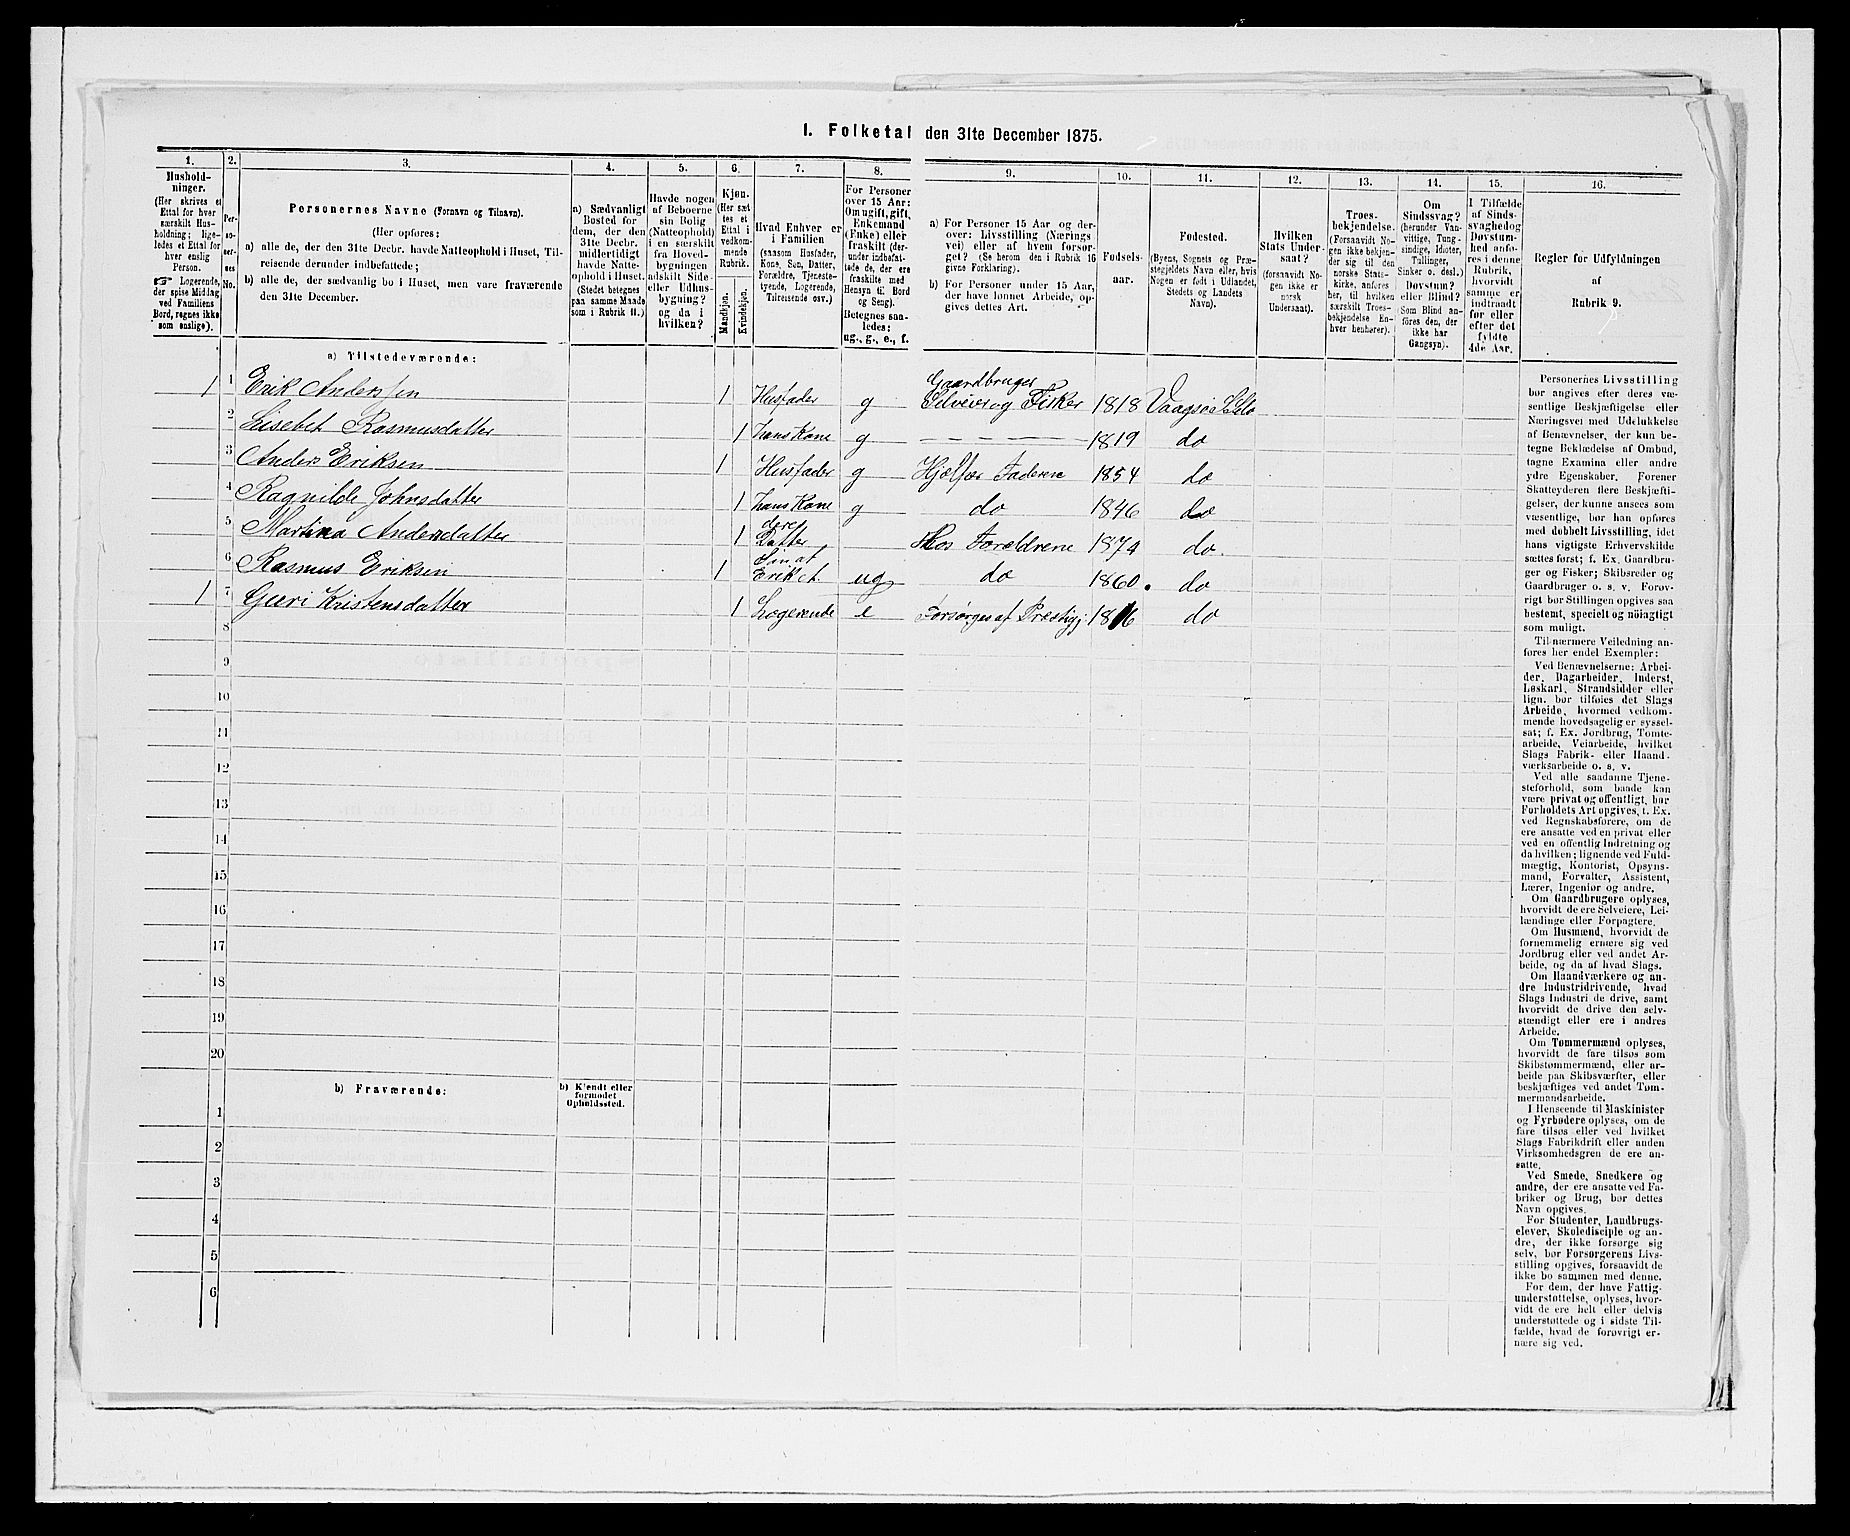 I. Folketal den 31te December 1875.
1. 2. 3. 4. 5. 6. 7. 8. 9. 10. 11. 12. 13. 14. 15. 16.
Hushold-
ninger.
(Her skrives et
Ettal for hver
særskilt Hus-
holdning; lige-
ledes et Ettal for
hver enslig
Person.
☞ Logerende,
der spise Middag
ved Familiens
Bord, regnes ikke
som enslige).
Per-
so-
ner-
nes
No.
Personernes Navne (Fornavn og Tilnavn).
(Her opføres:
a) alle de, der den 31te Decbr. havde Natteophold i Huset, Til-
reisende derunder indbefattede;
b) alle de, der sædvanlig bo i Huset, men vare fraværende
den 31te December.
a) Sædvanligt
Bosted for
dem, der den
31te Decbr.
midlertidigt
havde Natte-
ophold i Huset.
(Stedet betegnes
paa samme Maade
som i Rubrik 11.)
Havde nogen
af Beboerne
sin Bolig
(Natteophold)
i en særskilt
fra Hoved-
bygningen
adskilt Side-
eller Udhus-
bygning?
og da i
hvilken?
Kjøn.
(Her sæt-
tes et
Ettal i
vedkom-
mende
Rubrik.
Mandkjøn.
Kvindekjøn.
Hvad Enhver er
i Familien
(saasom Husfader,
Kone, Søn, Datter,
Forældre, Tjeneste-
tyende, Logerende,
Tilreisende osv.)
For Personer
over 15 Aar:
Om ugift, gift,
Enkemand
(Enke) eller
fraskilt (der-
under indbefat-
tede de, der ere
fraskilte med
Hensyn til Bord
og Seng).
Betegnes saa-
ledes:
ug., g., e., f.
a) For Personer 15 Aar og der-
over: Livsstilling (Nærings
vei) eller af hvem forsør-
get? (Se herom den i Rubrik 16
givne Forklaring).
b) For Personer under 15 Aar,
der have lønnet Arbeide, op-
gives dettes Art.
Fødsels-
aar.
Fødested.
(Byens, Sognets og Præ-
stegjeldets Navn eller, hvis
Nogen er født i Udlandet,
Stedets og Landets
Navn).
Hvilken
Stats Under-
saat?
(forsaavidt No-
gen ikke er
norsk
Undersaat).
Troes-
bekjendelse.
(Forsaavidt No-
gen ikke bekjen-
der sig til den
norske Stats-
kirke, anføres
her, til hvilken
særskilt Troes-
bekjendelse En-
hver henhører).
Om
Sindssvag?
(herunder Van-
vittige, Tung-
sindige, Idioter,
Tullinger,
Sinker o. desl.)
Døvstum?
eller Blind?
(Som Blind an-
føres den, der
ikke har
Gangsyn).
I Tilfælde
af Sinds-
svaghed og
Døvstum-
hed anfø-
res i denne
Rubrik,
hvorvidt
samme er
indtraadt
før eller
efter det
fyldte
4de Aar.
Regler for Udfyldningen
af
Rubrik 9.
a) Tilstedeværende:
1 1 Erik Anderssen 1 Husfader g Gaardbruger Selveier og Fisker 1818 Vaagsø Selø
2 Lisebet Rasmusdatter 1 hans Kone g — — — — — 1819 do
3 Anders Eriksen 1 Husfader g Hjælper Faderene 1854 do
4 Ragnilde Johnsdatter 1 hans Kone g do 1846 do
5 Martina Andersdatter 1 deres Datter Hos Foreldrene 1874 do.
6 Rasmus Eriksen 1 Søn af Erik A. ug do 1860. do
1 7 Guri Kristensdatter 1 Logerende e Forsørges af Præstigj. 1816 do
8
9
10
11
12
13
14
15
16
17
18
19
20
b) Fraværende:
b) Kjendt eller
formodet
Opholdssted.
1
2
3
4
5
6
Personernes Livsstilling
bør angives efter deres væ-
sentlige Beskjæftigelse eller
Næringsvei med Udelukkelse
af Benævnelser, der kun be-
tegne Beklædelse af Ombud,
tagne Examina eller andre
ydre Egenskaber. Forener
Skatteyderen flere Beskjæfti-
gelser, der kunne ansees som
væsentlige, bør han opføres
med dobbelt Livsstilling, idet
hans vigtigste Erhvervskilde
sættes først; f. Ex. Gaardbru-
ger og Fisker; Skibsreder og
Gaardbruger o. s. v. Forøv-
rigt bør Stillingen opgives saa
bestemt, specielt og nøiagtigt
som muligt.
Til nærmere Veiledning an-
føres her endel Exempler:
Ved Benævnelserne: Arbei-
der, Dagarbeider, Inderst,
Løskarl, Strandsidder eller
lign. bør tilføies det Slags
Arbeide, hvormed vedkom-
mende hovedsagelig er syssel-
sat; f. Ex. Jordbrug, Tomte-
arbeide, Veiarbeide, hvilket
Slags Fabrik- eller Haand-
værksarbeide o. s. v.
Ved alle saadanne Tjene-
steforhold, som baade kan
være privat og offentligt, bør
Forholdets Art opgives, t. Ex.
ved Regnskabsførere, om de
ere ansatte ved en privat eller
ved en offentlig Indretning og
da hvilken; lignende ved Fuld-
mægtig, Kontorist, Opsyns-
mand, Forvalter, Assistent,
Lærer, Ingeniør og andre.
Om Gaardbrugere oplyses,
hvorvidt de ere Selveiere, Lei-
lændinge eller Forpagtere.
Om Husmænd, hvorvidt de
fornemmelig ernære sig ved
Jordbrug eller ved andet Ar-
beide, og da af hvad Slags.
Om Haandværkere og an-
dre Industridrivende, hvad
Slags Industri de drive, samt
hvorvidt de drive den selv-
stændigt eller ere i andres
Arbeide.
Om Tømmermænd oplyses,
hvorvidt de fare tilsøs som
Skibstømmermænd, eller ar-
beide paa Skibsværfter, eller
beskjæftiges ved andet Tøm-
mermandsarbeide.
I Henseende til Maskinister
og Fyrbødere oplyses, om de
fare tilsøs eller ved hvilket
Slags Fabrikdrift eller anden
Virksomhedsgren de ere an-
satte.
Ved Smede, Snedkere og
andre, der ere ansatte ved Fa-
briker og Brug, bør dettes
Navn opgives.
For Studenter, Landbrugs-
elever, Skoledisciple og an-
dre, der ikke forsørge sig
selv, bør Forsørgerens Livs-
stilling opgives, forsaavidt de
ikke bo sammen med denne.
For dem, der have Fattig-
understøttelse, oplyses, hvor-
vidt de ere helt eller delvis
understøttede og i sidste Til-
fælde, hvad de forøvrigt er-
nære sig ved.